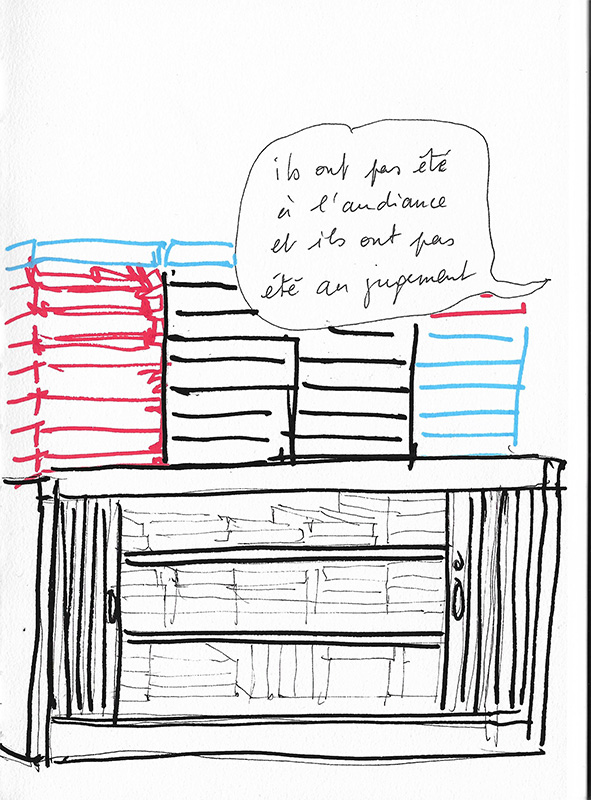 ils ont pas été
à l'audiance
et ils ont pas
été au jugement